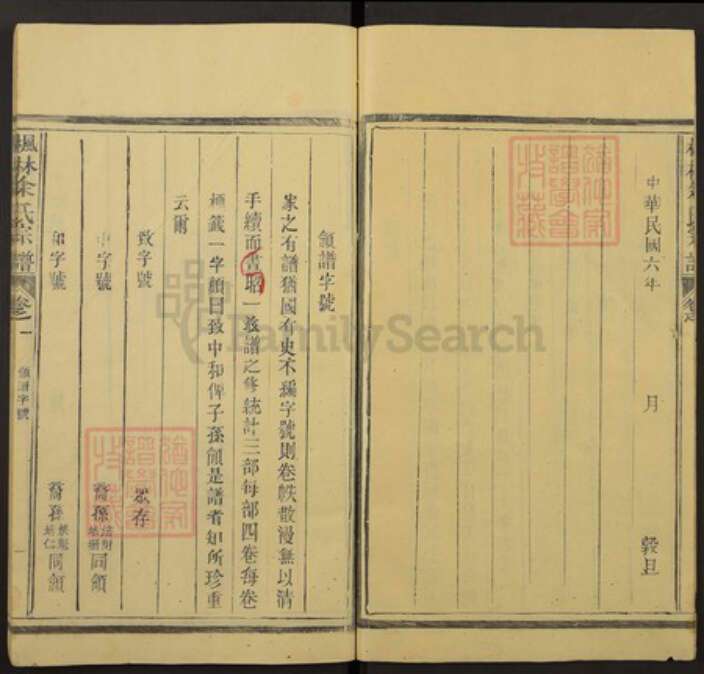 中華民國六年 月 穀旦
領譜字號
家之有譜猶國有史不編字號則卷帙散漫無以清
手續而書昭一茲譜之修統計三部每部四卷每卷
標籤一字顏曰致中和俾子孫領是譜者知所珍重
云爾
致字號 眾存
中字號 裔孫 同領
和字號 裔孫 同領
楓林余氏宗譜 卷之一 領譜字號
FamilySearch